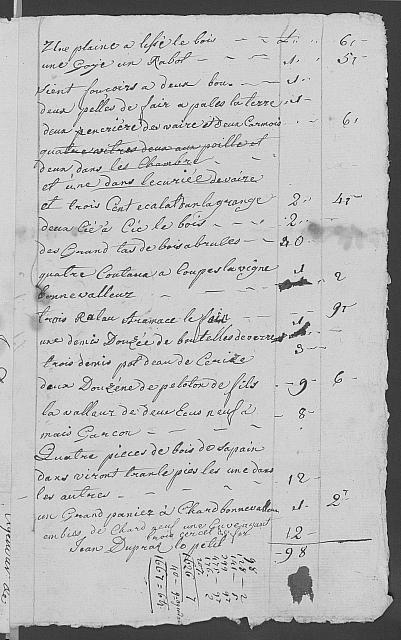 Une plaine a lisé le bois - - 6,-
une Goye un Rabot - - 1 - 5,-
deux pelles de fair a pales la terre -1-
deux pencrière de vaire et deux Carmois - 6,
quatre vitres deux aux poille et
deux dans les Chambre - -
et une dans lecurie de vaire
et trois Cent ecalat dan la grange 2 - 4,-
deux Cié a Cié le bois - - 2 -
des Grand tas de bois a brulés - 40
quatre Coutaux a Coupes la vigne 1 - 2
bonne valleur
trois Ratau A ramace le foin - 1 - 9,-
une demis Douzée de boutelles de verre
trois demis pot deau de Cerize 3 -
deux Douzéne de peloton de fils - 9 - 6 -
la valleur de deux Ecus neuf a - 8 -
mais Garcon - - -
Quatre pieces de bois de sapain
dans viront trante pies les une dans
les autres - - - 12 -
un Grand panier a Chardbonne valleur 1 - 2
12 -
Jean Duprat le petit
98